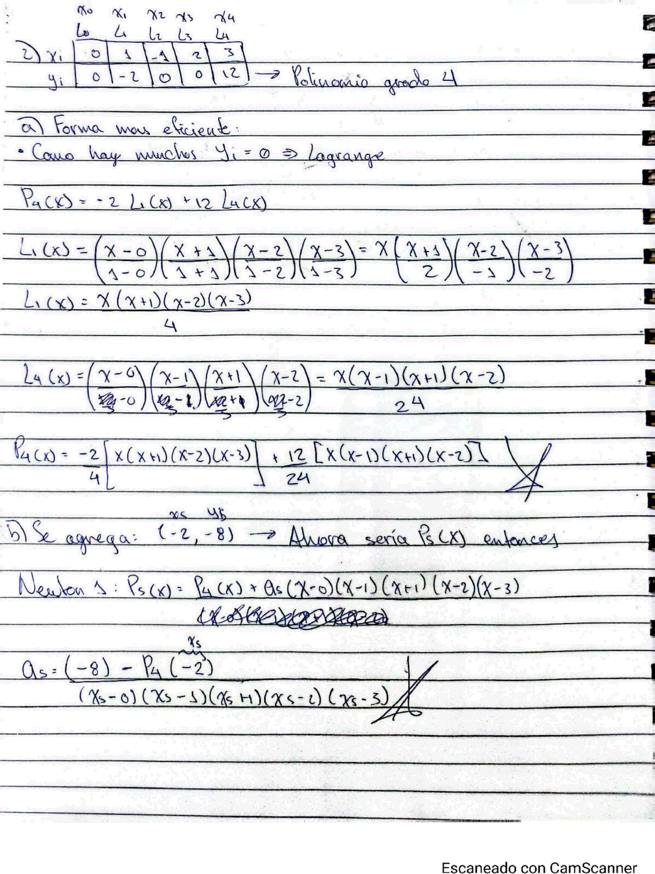 x₀ x₁ x₂ x₃ x₄
L₀ L₁ L₂ L₃ L₄
2) xᵢ | 0 | 1 | -1 | 2 | 3
yᵢ | 0 | -2 | 0 | 0 | 12 → Polinomio grado 4
a) Forma mas eficiente:
• Como hay muchos yᵢ = 0 ⇒ Lagrange
P₄(x) = -2 L₁(x) + 12 L₄(x)
L₁(x) = ((x-0)/(1-0)) ((x+1)/(1+1)) ((x-2)/(1-2)) ((x-3)/(1-3)) = x ((x+1)/2) ((x-2)/-1) ((x-3)/-2)
L₁(x) = x(x+1)(x-2)(x-3)/4
L₄(x) = ((x-0)/(3-0)) ((x-1)/(3-1)) ((x+1)/(3+1)) ((x-2)/(3-2)) = x(x-1)(x+1)(x-2)/24
P₄(x) = -2/4 [x(x+1)(x-2)(x-3)] + 12/24 [x(x-1)(x+1)(x-2)]
x₅ y₅
b) Se agrega: (-2, -8) → Ahora sería P₅(x) entonces
Newton 1: P₅(x) = P₄(x) + a₅(x-0)(x-1)(x+1)(x-2)(x-3)
x₅
a₅ = (-8) - P₄(-2) / (x₅-0)(x₅-1)(x₅+1)(x₅-2)(x₅-3)
Escaneado con CamScanner